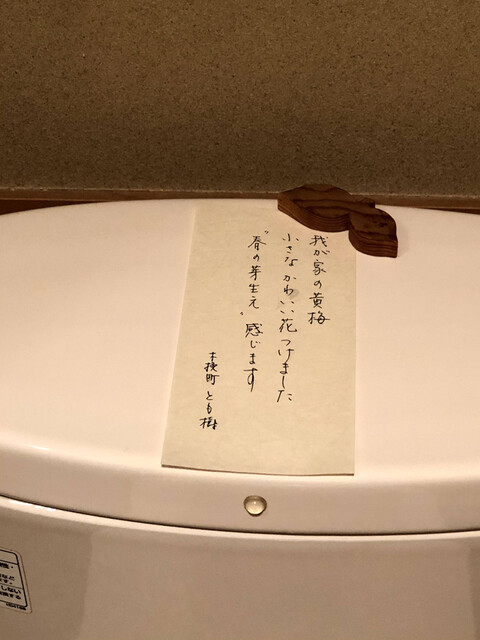 我が家の黄梅
小さなかわいい花つけました
〝春の芽生え〟感じます
木挽町 とも樹